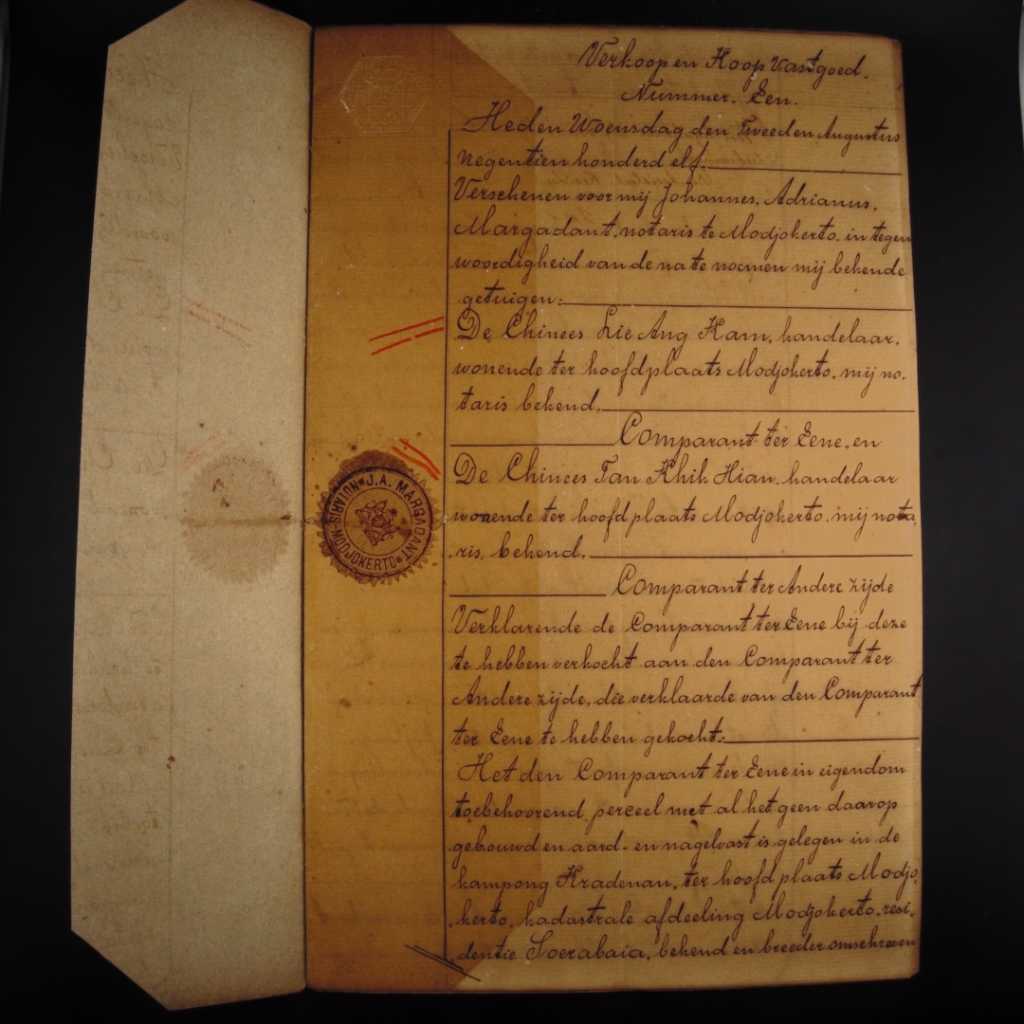 Verkoop en Koop Vastgoed.
Nummer. Een.
Heden Woensdag den Tweeden Augustus
negentien honderd elf.
Verschenen voor mij Johannes, Adrianus,
Margadant, notaris te Modjokerto, in tegen
woordigheid van de na te noemen mij bekende
getuigen:
De Chinees Lie Ang Ham, handelaar,
wonende ter hoofdplaats Modjokerto, mij no-
taris bekend,
Comparant ter Eene, en
De Chinees Tan Khik Hian, handelaar
wonende ter hoofdplaats Modjokerto, mij nota
ris, bekend,
Comparant ter Andere zijde
Verklarende de Comparant ter Eene bij deze
te hebben verkocht aan den Comparant ter
Andere zijde, die verklaarde van den Comparant
ter Eene te hebben gekocht:
Het den Comparant ter Eene in eigendom
toebehoorend, perceel met al het geen daarop
gebouwd en aard- en nagelvast is gelegen in de
kampong Kradenan, ter hoofdplaats Modjo
kerto, kadastrale afdeeling Modjokerto, resi-
dentie Soerabaia, bekend en breeder omschreven
J.A. MARGADANT
NOTARIS MODJOKERTO